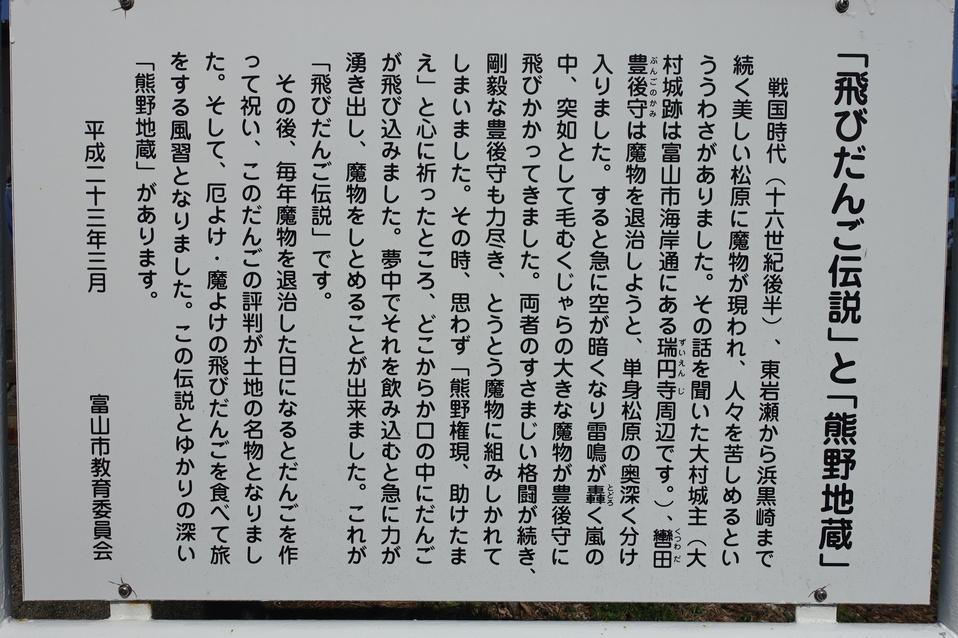 「飛びだんご伝説」と「熊野地蔵」
戦国時代（十六世紀後半）、東岩瀬から浜黒崎まで
続く美しい松原に魔物が現われ、人々を苦しめるとい
ううわさがありました。その話を聞いた大村城主（大
村城跡は富山市海岸通にある瑞円寺周辺です。）、轡田
豊後守は魔物を退治しようと、単身松原の奥深く分け
入りました。すると急に空が暗くなり雷鳴が轟く嵐の
中、突如として毛むくじゃらの大きな魔物が豊後守に
飛びかかってきました。両者のすさまじい格闘が続き、
剛毅な豊後守も力尽き、とうとう魔物に組みしかれて
しまいました。その時、思わず「熊野権現、助けたま
え」と心に祈ったところ、どこからか口の中にだんご
が飛び込みました。夢中でそれを飲み込むと急に力が
湧き出し、魔物をしとめることが出来ました。これが
「飛びだんご伝説」です。
その後、毎年魔物を退治した日になるとだんごを作
って祝い、このだんごの評判が土地の名物となりまし
た。そして、厄よけ・魔よけの飛びだんごを食べて旅
をする風習となりました。この伝説とゆかりの深い
「熊野地蔵」があります。
平成二十三年三月
富山市教育委員会